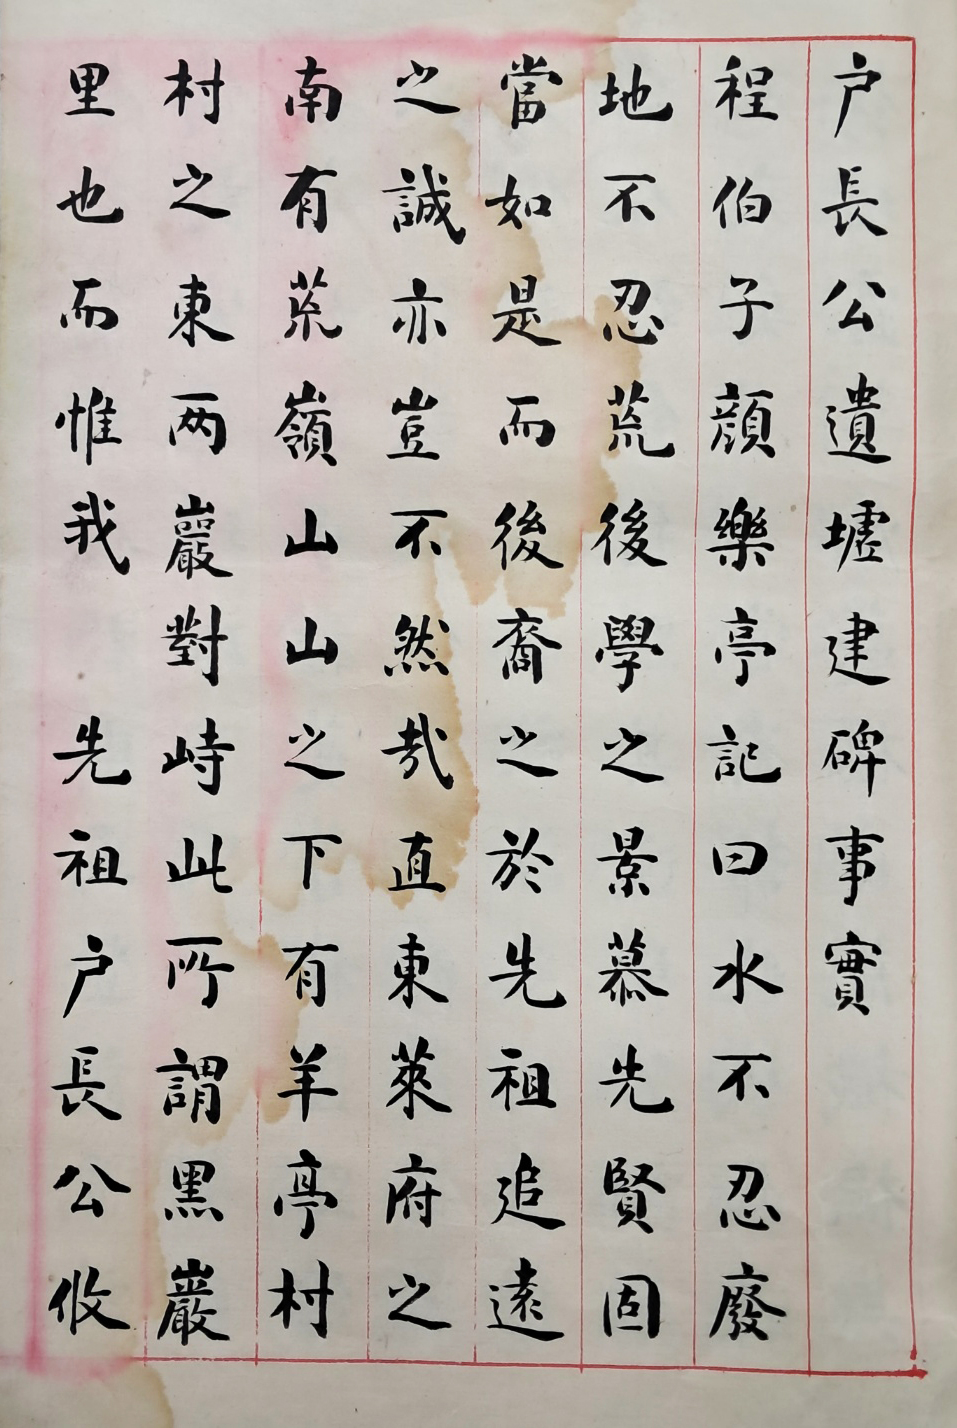 户長公遺墟建碑事實
程伯子顔樂亭記曰水不忍廢
地不忍荒後學之景慕先賢固
當如是而後裔之於先祖追遠
之誠亦豈不然㢤直東萊府之
南有荒嶺山山之下有羊亭村
村之東两巖對峙此所謂黑巖
里也而惟我 先祖户長公攸